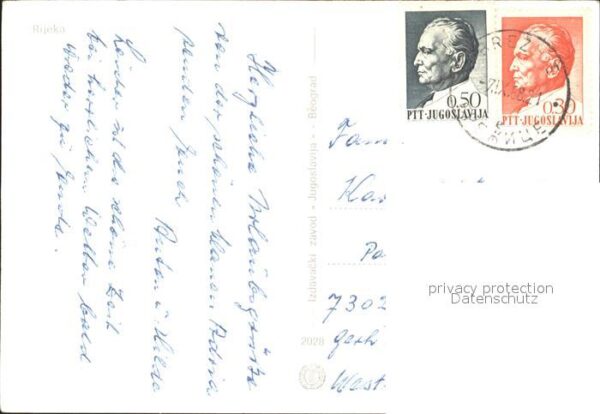 Rijeka
Herzliche Urlaubsgrüße
von der schönen blauen Adria
senden Euch Anton u. Hilde
Leider ist die schöne Zeit
bei herrlichem Wetter bald
wieder zu Ende.
Izdavački zavod • Jugoslavija • Beograd
2028
0.50
PTT-JUGOSLAVIJA
0.30
PTT-JUGOSLAVIJA
Fam
Ka
Pa
7302
West
privacy protection
Datenschutz